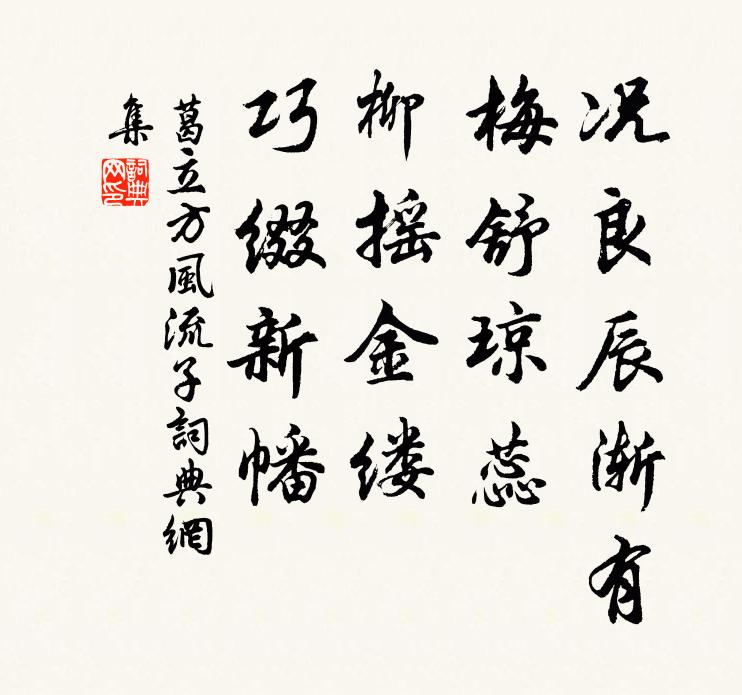 况良辰渐有
梅舒琼蕊
柳摇金缕
巧缀新幡
葛立方風流子詞典網
集
詞典
网印